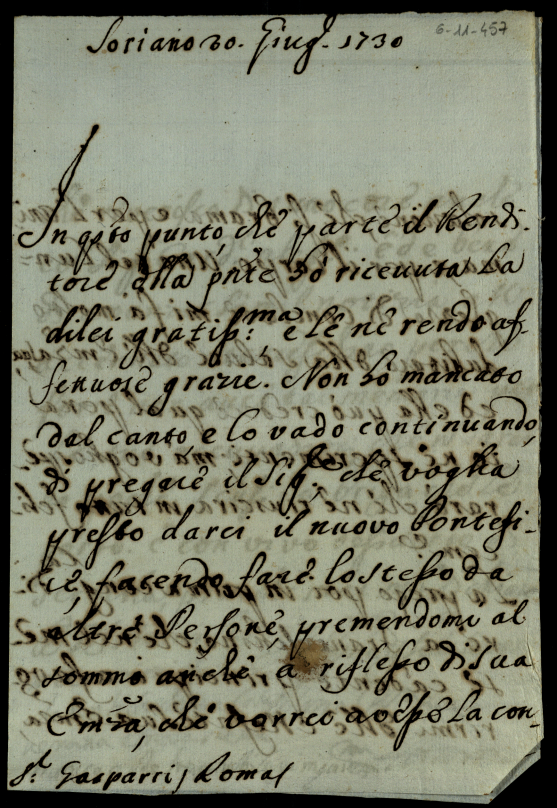 6-11-457
Soriano 20. Giug. 1730
In qsto punto, che parte il Rendi-
tore dlla pnte hò riceuuta la
dilei gratiss:ma, e le ne rendo af-
fettuose grazie. Non hò mancato
dal canto, e lo vado continuando,
di pregare il Sig.re che voglia
presto darci il nuovo Pontefi-
ce, facendo fare lo stesso da
altre Persone, premendomi al
sommo anche a riflesso di sua
Emza, che vorrei avesse la con-
Sr. Gasparri, Roma